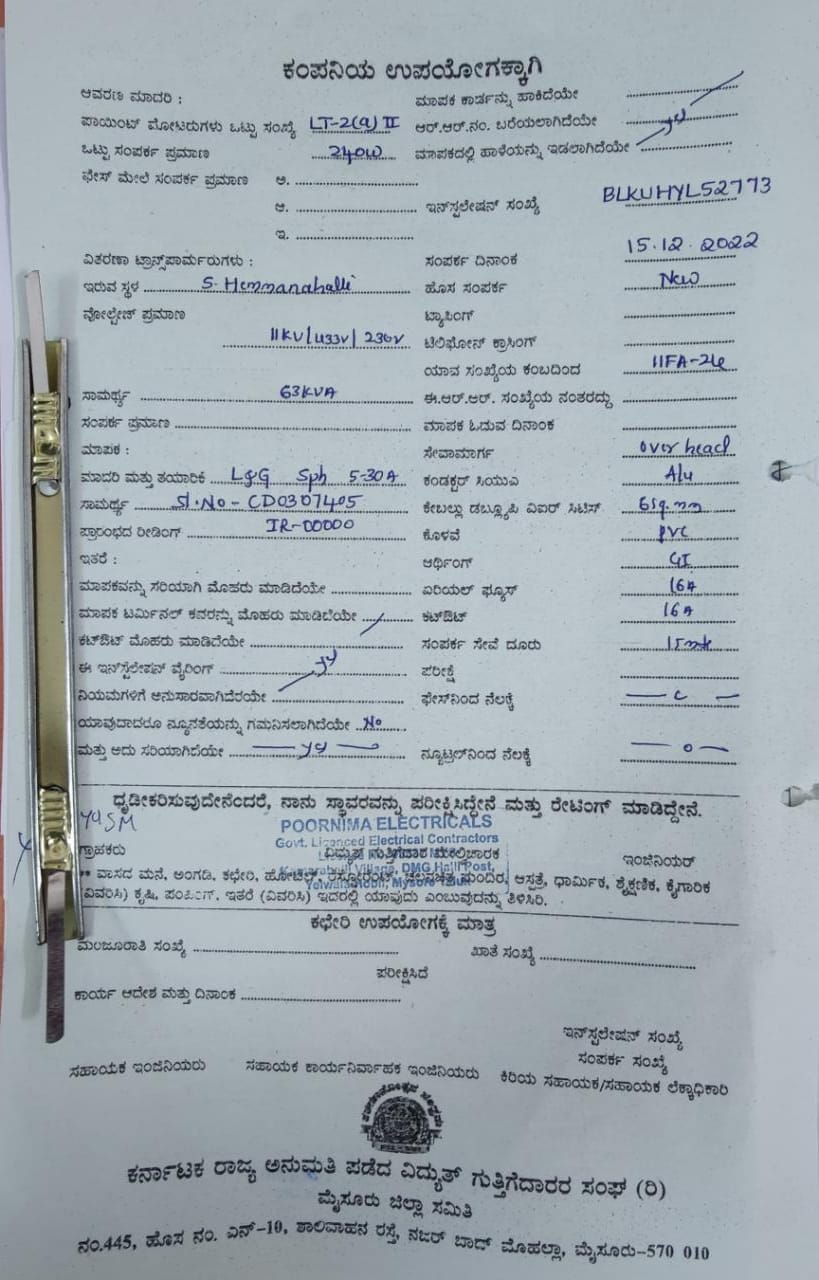 ಕಂಪನಿಯ ಉಪಯೋಗಕ್ಕಾಗಿ
ಆವರಣ ಮಾದರಿ : ಮಾಪಕ ಕಾರ್ಡನ್ನು ಹಾಕಿದೆಯೇ
ಪಾಯಿಂಟ್ ಮೋಟರುಗಳು ಒಟ್ಟು ಸಂಖ್ಯೆ LT-2(a) II ಆರ್.ಆರ್.ನಂ. ಬರೆಯಲಾಗಿದೆಯೇ
ಒಟ್ಟು ಸಂಪರ್ಕ ಪ್ರಮಾಣ 240W ಮಾಪಕದಲ್ಲಿ ಹಾಳೆಯನ್ನು ಇಡಲಾಗಿದೆಯೇ
ಫೇಸ್ ಮೇಲೆ ಸಂಪರ್ಕ ಪ್ರಮಾಣ ಅ.
ಆ. ಇನ್‌ಸ್ಟಲೇಷನ್ ಸಂಖ್ಯೆ BLKUHYL52773
ಇ.
ವಿತರಣಾ ಟ್ರಾನ್ಸ್‌ಪಾರ್ಮರುಗಳು : ಸಂಪರ್ಕ ದಿನಾಂಕ 15.12.2022
ಇರುವ ಸ್ಥಳ S. Hemmanahalli ಹೊಸ ಸಂಪರ್ಕ New
ವೋಲ್ಟೇಜ್ ಪ್ರಮಾಣ ಟ್ಯಾಪಿಂಗ್
11KV/433V/230V ಟೆಲಿಫೋನ್ ಕ್ರಾಸಿಂಗ್
ಯಾವ ಸಂಖ್ಯೆಯ ಕಂಬದಿಂದ 11FA-24
ಸಾಮರ್ಥ್ಯ 63KVA ಈ.ಆರ್.ಆರ್. ಸಂಖ್ಯೆಯ ನಂತರದ್ದು
ಸಂಪರ್ಕ ಪ್ರಮಾಣ ಮಾಪಕ ಓದುವ ದಿನಾಂಕ
ಮಾಪಕ : ಸೇವಾಮಾರ್ಗ over head
ಮಾದರಿ ಮತ್ತು ತಯಾರಿಕೆ L&G Sph 5-30A ಕಂಡಕ್ಟರ್ ಸಿಯುಎ Alu
ಸಾಮರ್ಥ್ಯ Sl.No - CD0307405 ಕೇಬಲ್ಲು ಡಬ್ಲ್ಯೂಪಿ ವಿಐರ್ ಸಿಟಿಸ್ 6sq.mm
ಪ್ರಾರಂಭದ ರೀಡಿಂಗ್ IR-00000 ಕೊಳವೆ PVC
ಇತರೆ : ಆರ್ಥಿಂಗ್ GI
ಮಾಪಕವನ್ನು ಸರಿಯಾಗಿ ಮೊಹರು ಮಾಡಿದೆಯೇ ಏರಿಯಲ್ ಫ್ಯೂಸ್ 16A
ಮಾಪಕ ಟರ್ಮಿನಲ್ ಕವರನ್ನು ಮೊಹರು ಮಾಡಿದೆಯೇ ಕಟ್‌ಔಟ್ 16A
ಕಟ್‌ಔಟ್ ಮೊಹರು ಮಾಡಿದೆಯೇ ಸಂಪರ್ಕ ಸೇವೆ ದೂರು 15mtr
ಈ ಇನ್‌ಸ್ಟಲೇಷನ್ ವೈರಿಂಗ್ ಪರೀಕ್ಷೆ
ನಿಯಮಗಳಿಗೆ ಅನುಸಾರವಾಗಿದೆರಯೇ ಫೇಸ್‌ನಿಂದ ನೆಲಕ್ಕೆ
ಯಾವುದಾದರೂ ನ್ಯೂನತೆಯನ್ನು ಗಮನಿಸಲಾಗಿದೆಯೇ No
ಮತ್ತು ಅದು ಸರಿಯಾಗಿದೆಯೇ ನ್ಯೂಟ್ರಲ್‌ನಿಂದ ನೆಲಕ್ಕೆ — 0 —
ಧೃಡೀಕರಿಸುವುದೇನೆಂದರೆ, ನಾನು ಸ್ಥಾವರವನ್ನು ಪರೀಕ್ಷಿಸಿದ್ದೇನೆ ಮತ್ತು ರೇಟಿಂಗ್ ಮಾಡಿದ್ದೇನೆ.
POORNIMA ELECTRICALS
Govt. Licenced Electrical Contractors
ಗ್ರಾಹಕರು ವಿದ್ಯುತ್ ಗುತ್ತಿಗೆದಾರ ಮೇಲ್ವಿಚಾರಕ ಇಂಜಿನಿಯರ್
** ವಾಸದ ಮನೆ, ಅಂಗಡಿ, ಕಛೇರಿ, ಹೋಟೆಲ್, ರೆಸ್ಟೋರೆಂಟ್, ಚಲನಚಿತ್ರ ಮಂದಿರ, ಆಸ್ಪತ್ರೆ, ಧಾರ್ಮಿಕ, ಶೈಕ್ಷಣಿಕ, ಕೈಗಾರಿಕ
Yelwala Hobli, Mysore Taluk
(ವಿವರಿಸಿ) ಕೃಷಿ, ಪಂಪಿಂಗ್. ಇತರೆ (ವಿವರಿಸಿ) ಇದರಲ್ಲಿ ಯಾವುದು ಎಂಬುವುದನ್ನು ತಿಳಿಸಿರಿ.
ಕಛೇರಿ ಉಪಯೋಗಕ್ಕೆ ಮಾತ್ರ
ಮಂಜೂರಾತಿ ಸಂಖ್ಯೆ ಖಾತೆ ಸಂಖ್ಯೆ
ಪರೀಕ್ಷಿಸಿದೆ
ಕಾರ್ಯ ಆದೇಶ ಮತ್ತು ದಿನಾಂಕ
ಇನ್‌ಸ್ಟಲೇಷನ್ ಸಂಖ್ಯೆ
ಸಂಪರ್ಕ ಸಂಖ್ಯೆ
ಸಹಾಯಕ ಇಂಜಿನಿಯರು ಸಹಾಯಕ ಕಾರ್ಯನಿರ್ವಾಹಕ ಇಂಜಿನಿಯರು ಕಿರಿಯ ಸಹಾಯಕ/ಸಹಾಯಕ ಲೆಕ್ಕಾಧಿಕಾರಿ
ಕರ್ನಾಟಕ ರಾಜ್ಯ ಅನುಮತಿ ಪಡೆದ ವಿದ್ಯುತ್ ಗುತ್ತಿಗೆದಾರರ ಸಂಘ (ರಿ)
ಮೈಸೂರು ಜಿಲ್ಲಾ ಸಮಿತಿ
ನಂ.445, ಹೊಸ ನಂ. ಎನ್-10, ಶಾಲಿವಾಹನ ರಸ್ತೆ, ನಜರ್ ಬಾದ್ ಮೊಹಲ್ಲಾ, ಮೈಸೂರು-570 010